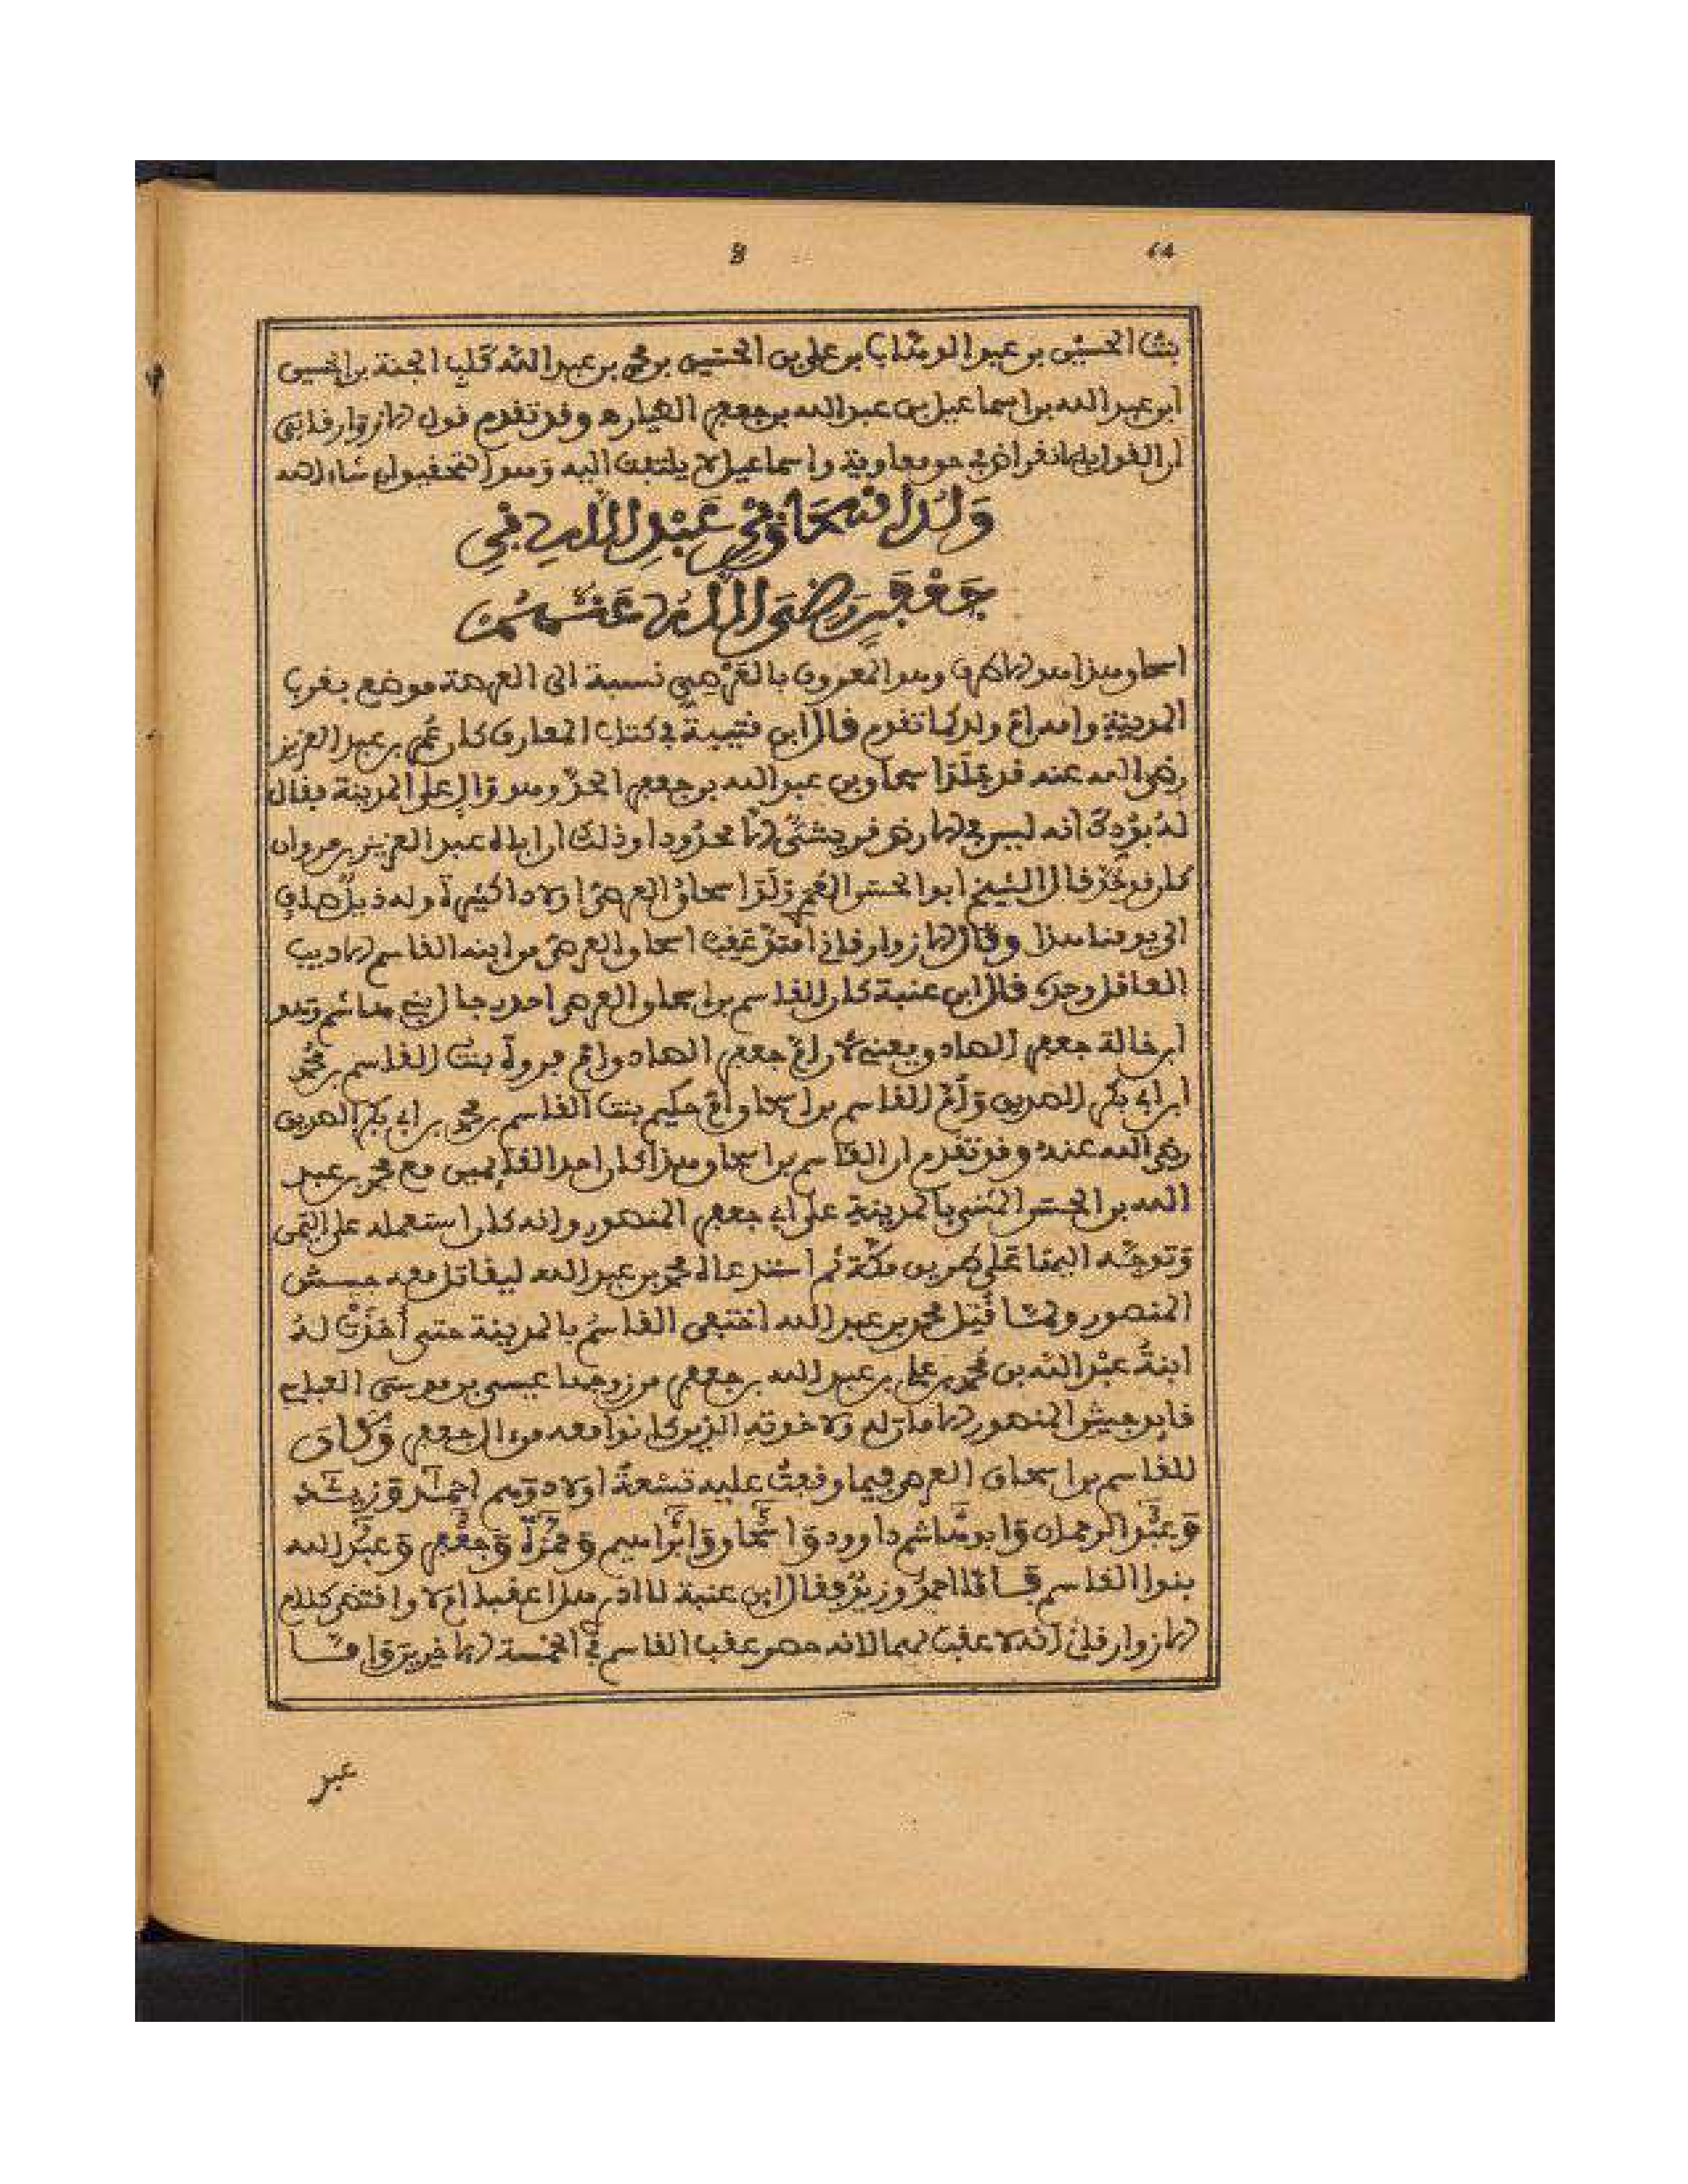 بنت الحسين بن عبد الوهاب بن علي بن الحسين بن محمد بن عبد الله كلب الجنة بن الحسين
ابن عبد الله بن اسماعيل بن عبد الله بن جعفر الطيار ه وقد تقدم قول الازوارقاني
ان القول بانقراض معاوية واسماعيل لا يلتفت اليه وهو التحقيق ان شاء الله
ولد اسحاق بن عبد الله بن
جعفر رضي الله عنهم
اسحاق هذا هو الاطرف وهو المعروف بالعريضي نسبة الى العريضة موضع بقرب
المدينة وامه ام ولد كما تقدم قال ابن قتيبة في كتاب المعارف كان عمر بن عبد العزيز
رضي الله عنه قد جلد اسحاق بن عبد الله بن جعفر الحد وهو وال على المدينة فقال
له بودك انه ليس في الارض قريشي الا محدودا وذلك ان اباه عبد العزيز بن مروان
كان قد حد قال الشيخ ابو الحسن العمري ولد اسحاق العريضي اولادا كثيرة وله ذيل
الى يومنا هذا وقال الازوارقاني امتد عقب اسحاق العريضي من ابنه القاسم الاديب
العاقل وحده قال ابن عنبة كان القاسم بن اسحاق العريضي احد رجال بني هاشم وهو
ابن خالة جعفر الصادق يعني لان ام جعفر الصادق ام فروة بنت القاسم بن محمد
ابن ابي بكر الصديق وام القاسم بن اسحاق ام حكيم بنت القاسم بن محمد بن ابي بكر الصديق
رضي الله عنه وقد تقدم ان القاسم بن اسحاق هذا كان احد القائمين مع محمد بن عبد
الله بن الحسن المثنى بالمدينة على ابي جعفر المنصور وانه كان استعمله على اليمن
وتوجه اليها على طريق مكة ثم استدعاه محمد بن عبد الله ليقاتل معه جيش
المنصور ولما قتل محمد بن عبد الله اختفى القاسم بالمدينة حتى أخذت له
ابنة عبد الله بن محمد بن علي بن عبد الله بن جعفر من زوجها عيسى بن موسى العباسي
قايد جيش المنصور الامان له ولاخوته الذين كانوا معه من ال جعفر وكان
للقاسم بن اسحاق العريضي فيما وقفت عليه تسعة اولاد وهم احمد وزيد
وعبد الرحمان وابو هاشم داوود واسحاق وابراهيم وحمزة وجعفر وعبد الله
بنوا القاسم فاما احمد وزيد فقال ابن عنبة لا ادر هل اعقبا ام لا واقتضى كلام
الازوارقاني انه لا عقب لهما لانه حصر عقب القاسم في الخمسة الاخرين واما
عبد